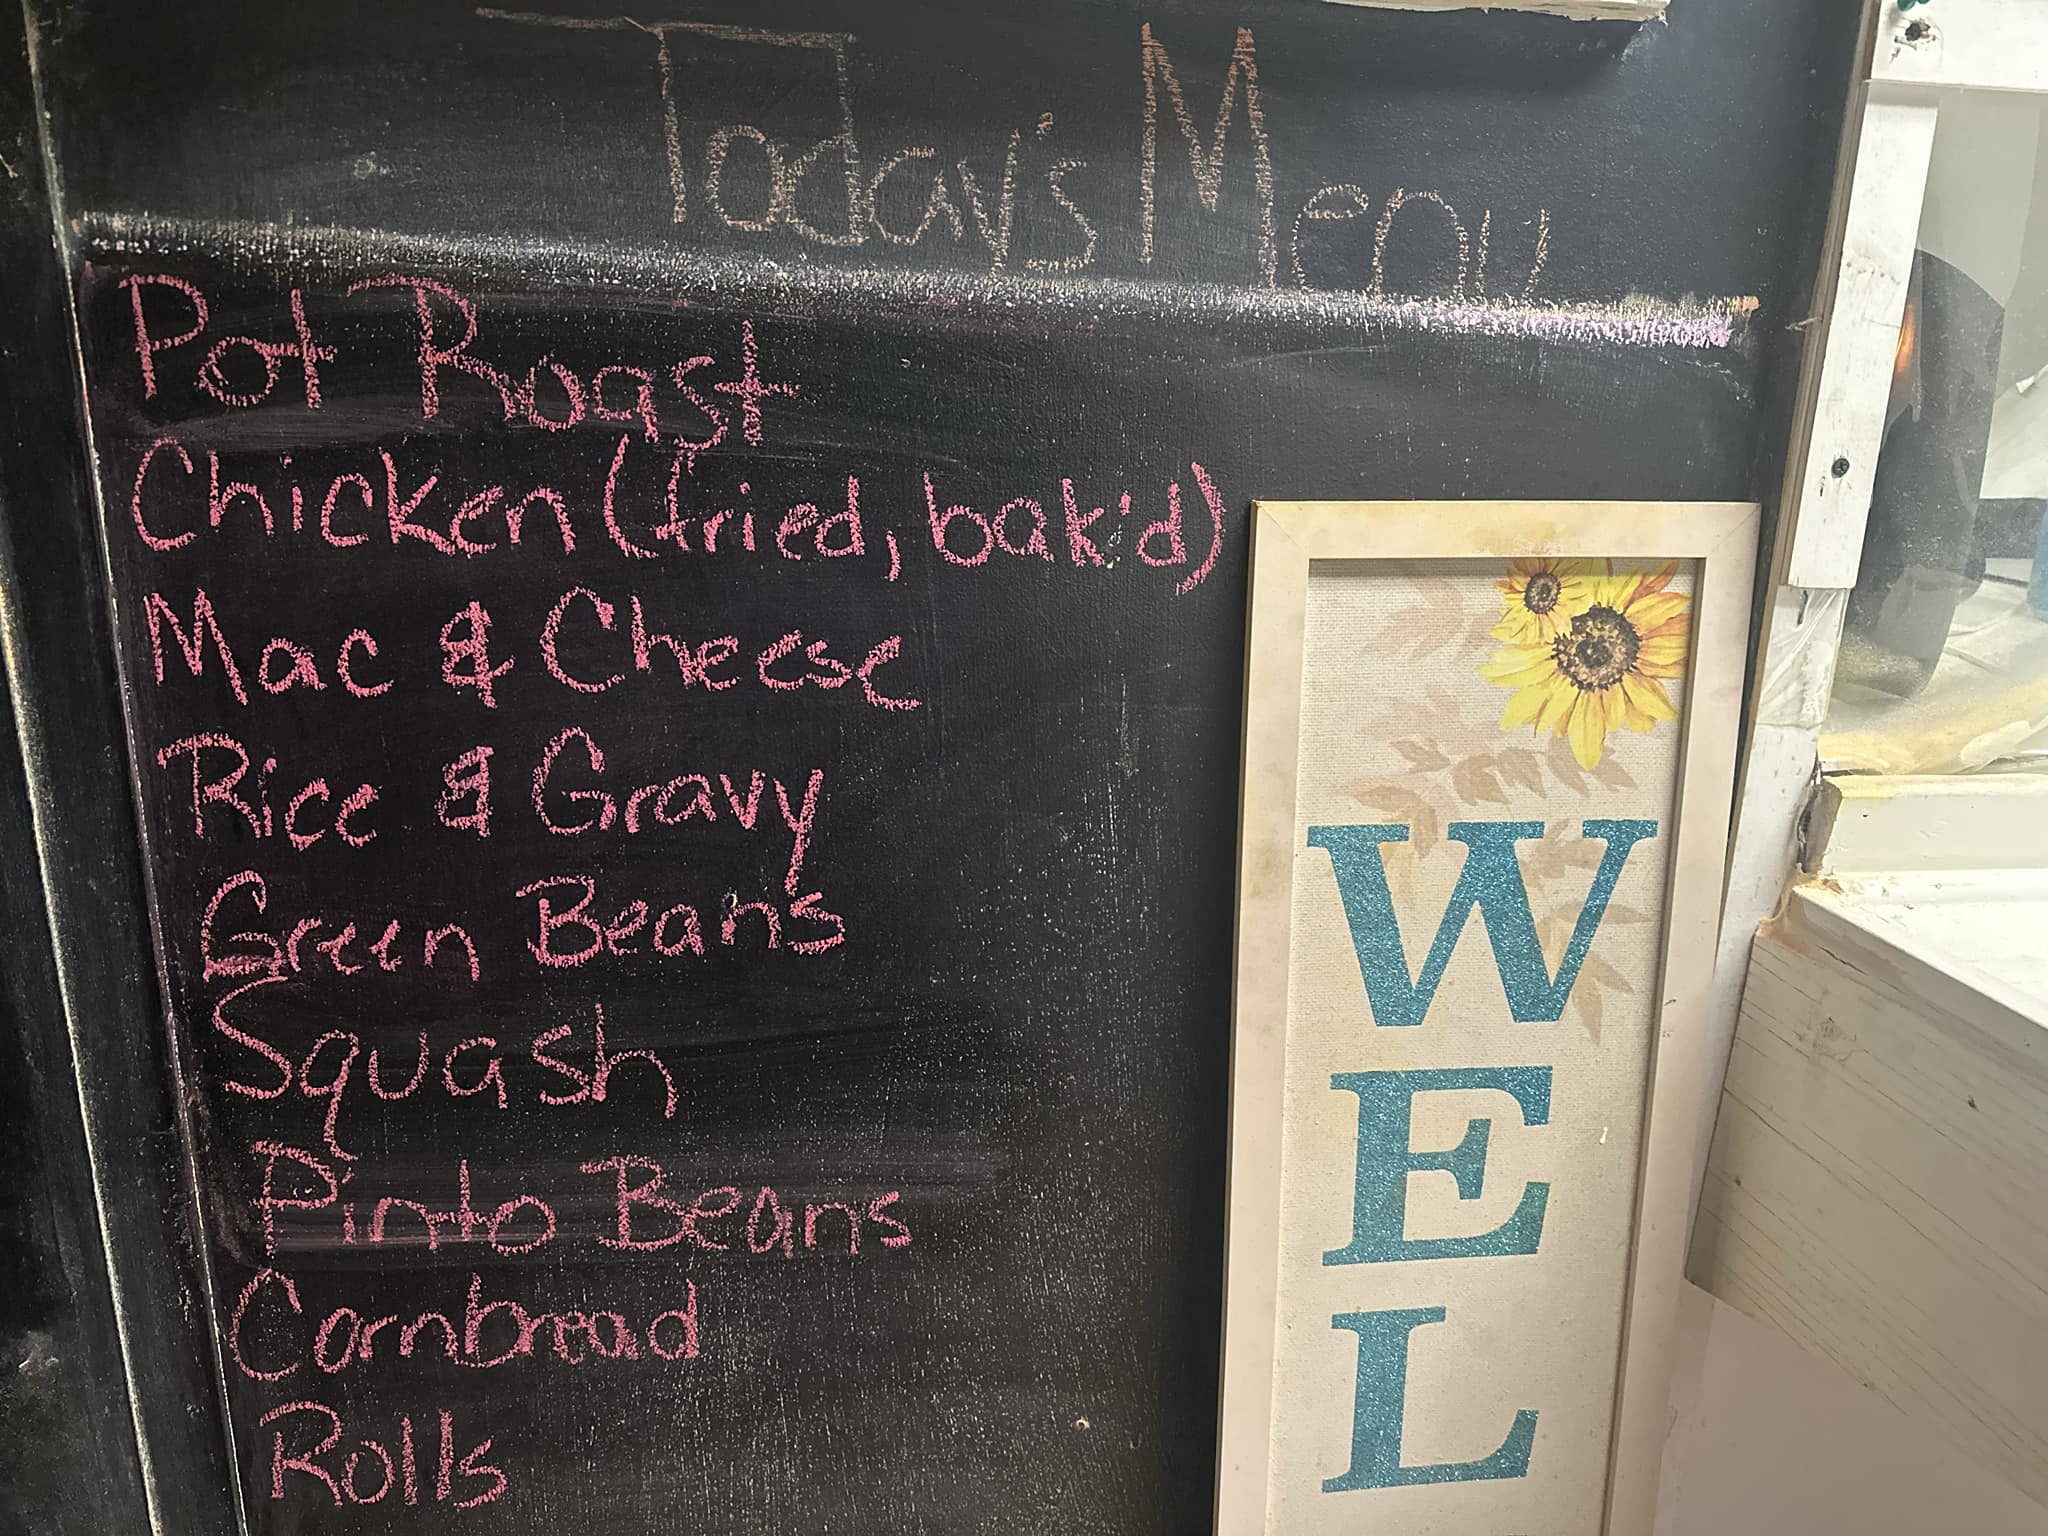 Today's Menu
Pot Roast
Chicken (fried, bak'd)
Mac & Cheese
Rice & Gravy
Green Beans
Squash
Pinto Beans
Cornbread
Rolls
W
E
L